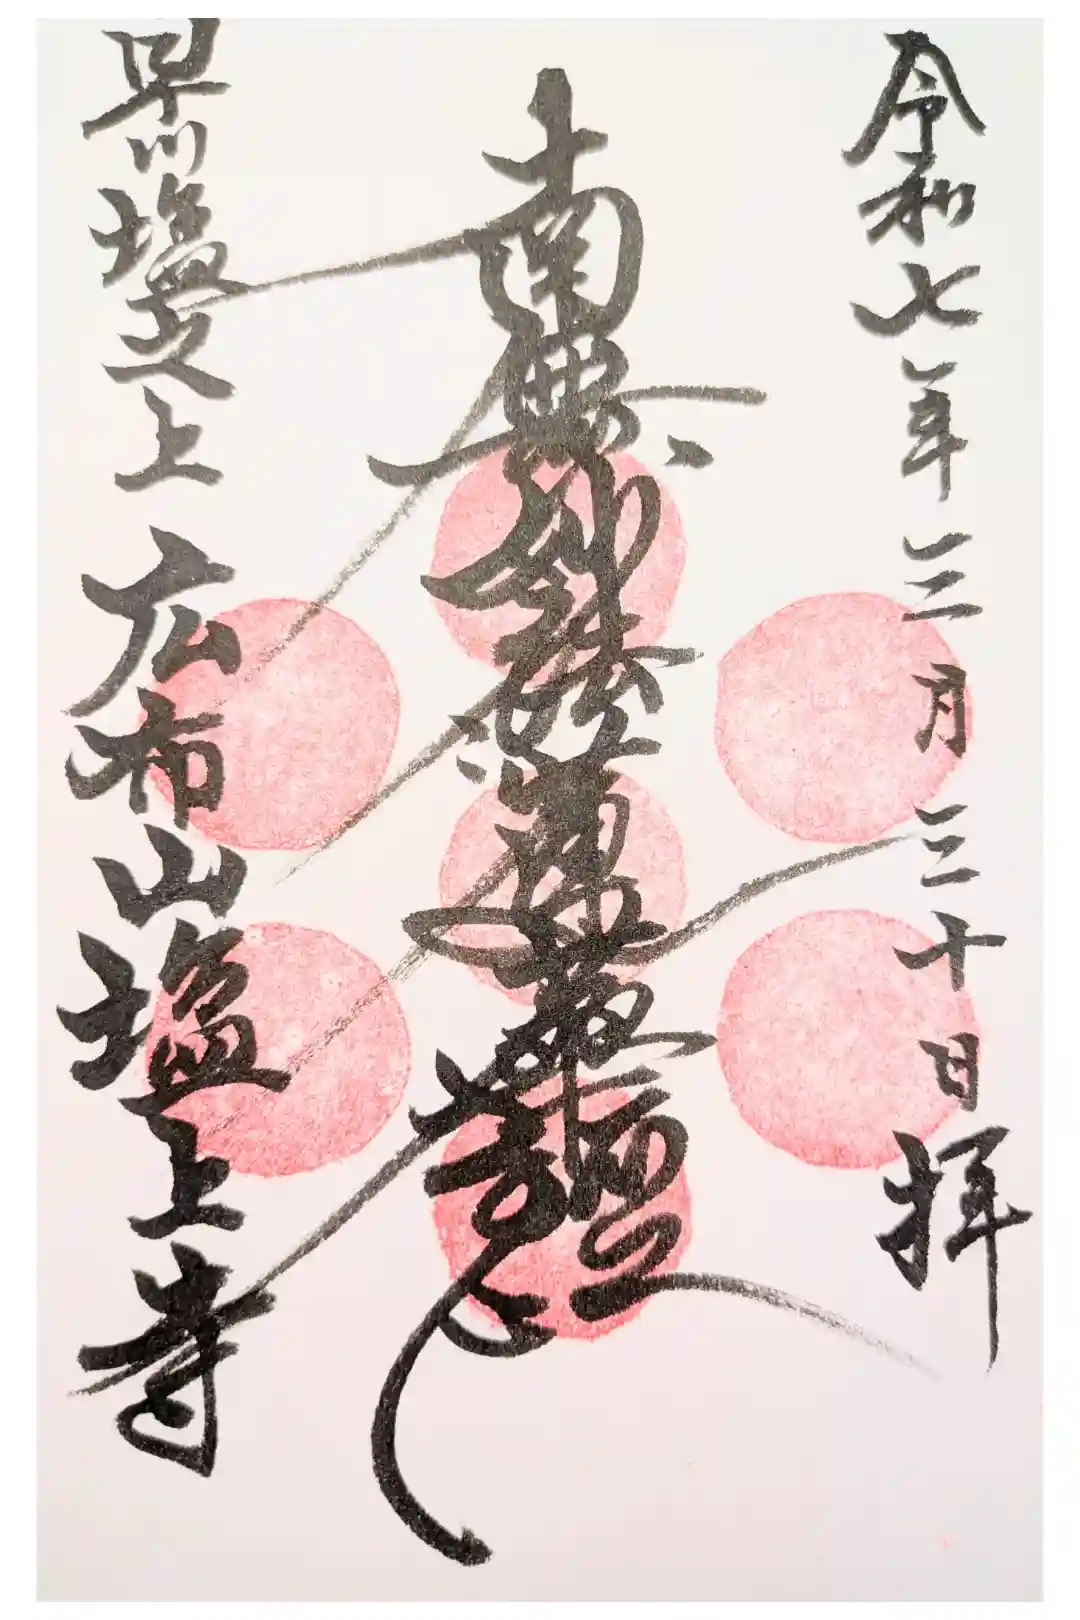 令和七年三月三十日 拝
南無妙法蓮華経
早川塩之上 広布山塩上寺